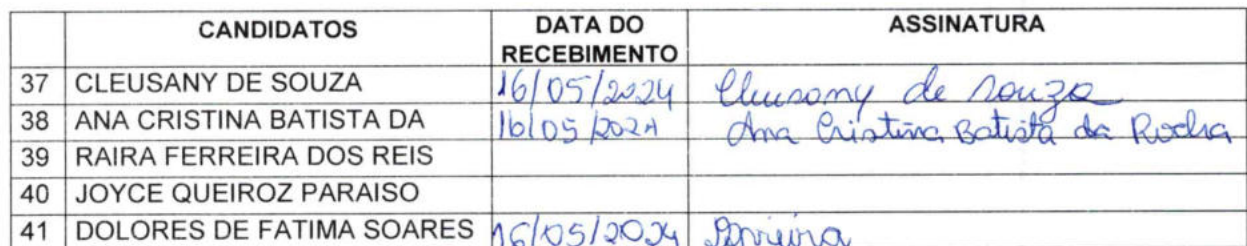 CANDIDATOS DATA DO RECEBIMENTO ASSINATURA
37 CLEUSANY DE SOUZA 16/05/2024 Cleusany de Souza
38 ANA CRISTINA BATISTA DA 16/05/2024 Ana Cristina Batista da Rocha
39 RAIRA FERREIRA DOS REIS
40 JOYCE QUEIROZ PARAISO
41 DOLORES DE FATIMA SOARES 16/05/2024